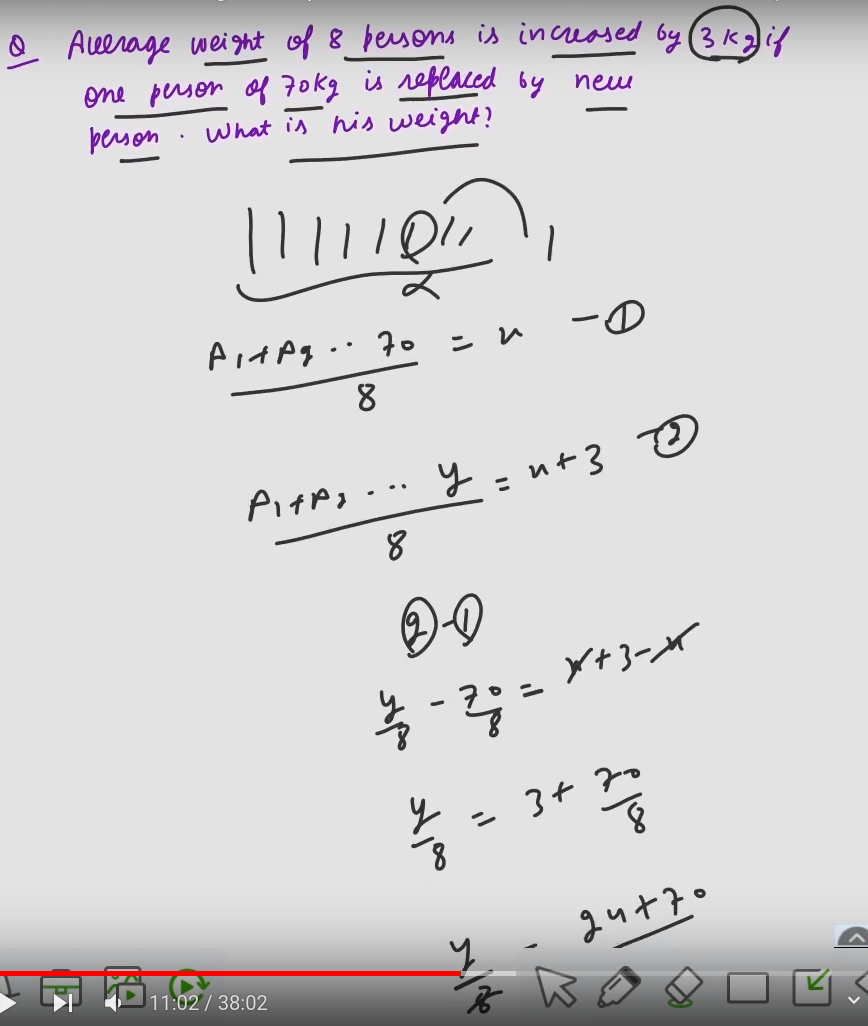 Q Average weight of 8 persons is increased by 3 kg if
one person of 70kg is replaced by new
person. What is his weight?
x
P1+P2 .. 70 = x - 1
8
P1+P2 ... y = x+3 - 2
8
2-1
y/8 - 70/8 = x+3-x
y/8 = 3+ 70/8
y/8 = 24+70
11:02 / 38:02